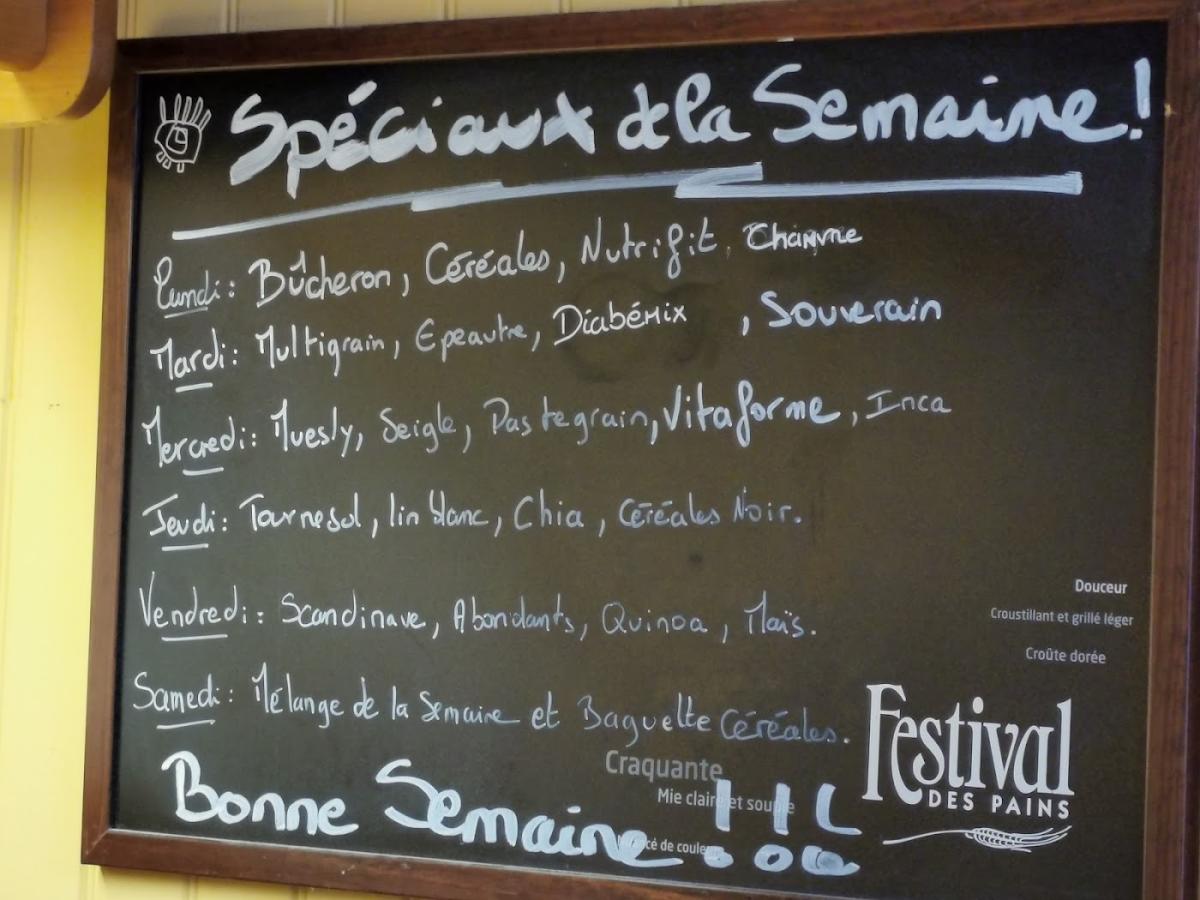 Spéciaux de la Semaine!
Lundi: Bûcheron, Céréales, Nutrifit, Chanvre
Mardi: Multigrain, Epeautre, Diabémix, Souverain
Mercredi: Muesly, Seigle, Pastegrain, Vitaforme, Inca
Jeudi: Tournesol, lin blanc, Chia, Céréales Noir.
Vendredi: Scandinave, Abondants, Quinoa, Maïs.
Samedi: Mélange de la Semaine et Baguette Céréales.
Bonne Semaine !!!
Douceur
Croustillant et grillé léger
Croûte dorée
Craquante
Mie claire et souple
cé de couleur
Festival
DES PAINS